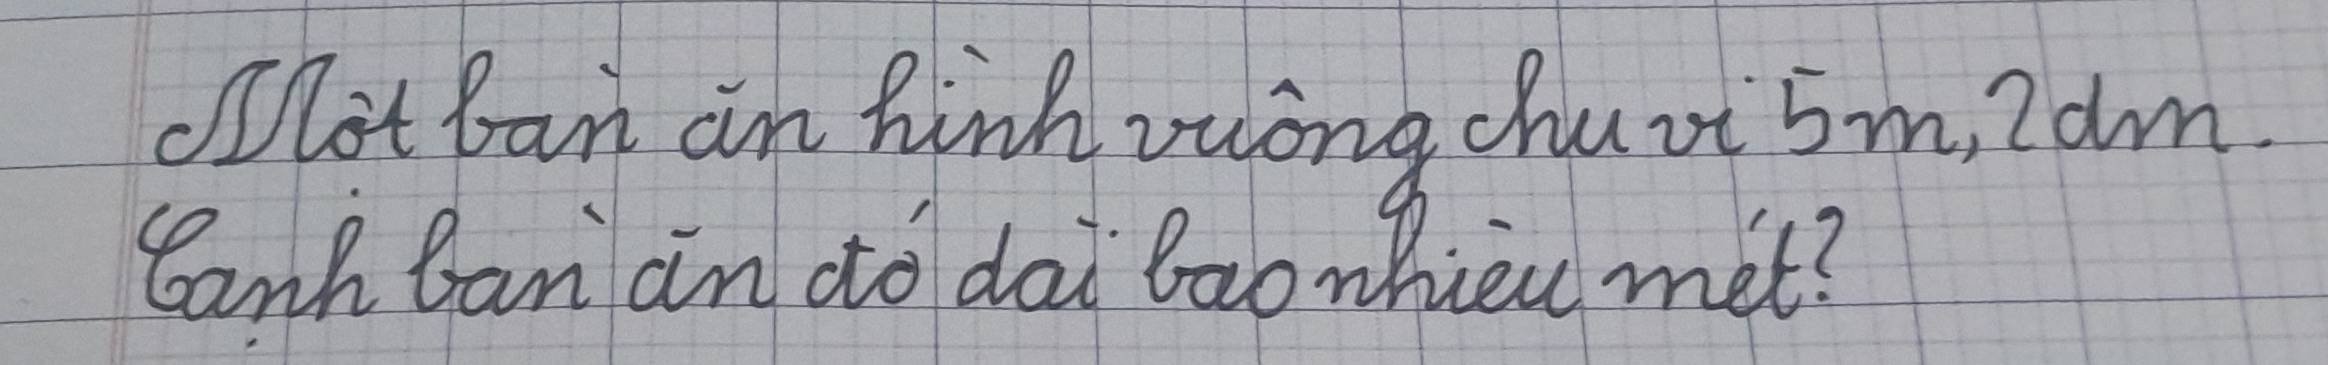 Một bàn ăn hình vuông chu vi 5m, 2dm.
Cạnh bàn ăn đó dài bao nhiêu mét?